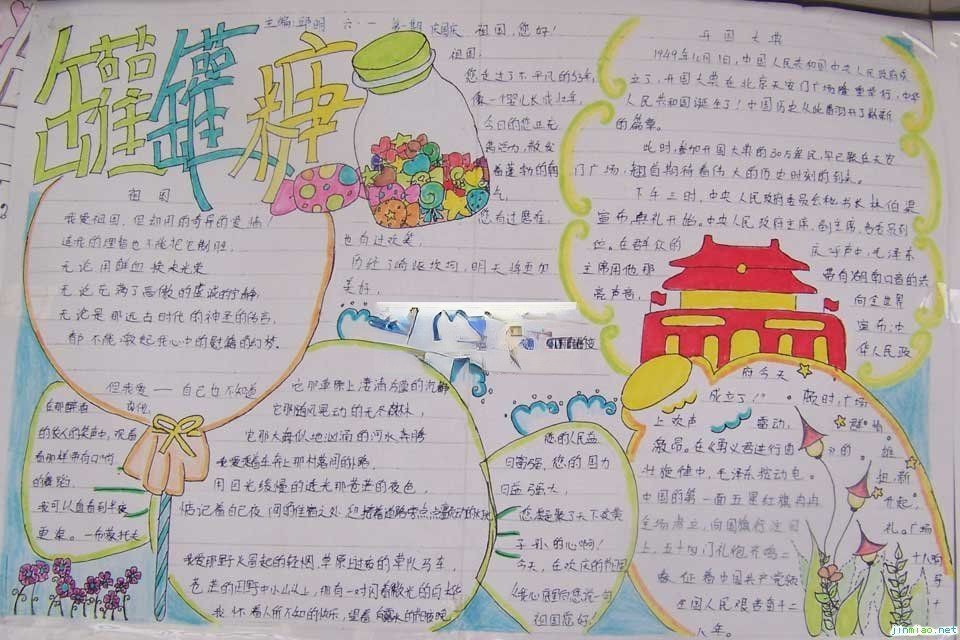 罐罐糖
主编:邱明 六·一 第一期 庆国庆
祖国,您好!
祖国:
您走过了不平凡的
像一个婴儿长成
今日的您正充
满活力,散发
着蓬勃的朝
您有过磨难,
也有过欢笑,
历经了崎岖坎坷,明天将更加
美好,
祖国
我爱祖国,但却用的奇异的爱情!
连我的理智也不能把它制胜,
无论用鲜血换来光荣
无论充满了高傲的虔诚的宁静
无论是那远古时代的神圣的传言,
都不能激起我心中的慰藉的幻梦。
但我爱——自己也不知道
它那草原上凄清冷漠的沉静
它那随风晃动的无尽森林,
它那大海似地汹涌的河水奔腾
我爱乘着车奔上那村落间的小路,
用目光缓慢的透过那苍茫的夜色,
惦记着自己夜间的住宿之处
我爱那野火冒起的轻烟,草原上过夜的车队马车,
苍茫的田野中小山头上,那有一对闪着微光的白桦
我怀着人所不知的快乐,望着
的农人的笑声中,观看
着那样带有口哨
的舞蹈,
我可以直看到半夜
更深。——布莱托夫
您的人民益
日富强,您的国力
日益强大,
您凝聚了天下炎黄
子孙的心啊!
今天,在欢庆的节日
我心想向您说一句
祖国您好!
开国大典
1949年10月1日,中国人民共和国中央人民政府成
立了,开国大典在北京天安门广场隆重举行,中华
人民共和国诞生了!中国历史从此翻开了崭新
的篇章。
此时,参加开国大典的30万军民,早已聚在天安
门广场,翘首期待着伟大的历史时刻的到来。
下午三时,中央人民政府委员会秘书长林伯渠
宣布典礼开始。中央人民政府主席、副主席、各委员到
位。在群众的欢呼声中,毛泽东
主席用他那带自湖南口音的洪
亮声音,向全世界
宣布:中
华人民政
府今天
成立了!”顿时,广场
上欢声雷动,群情
激昂。在《义勇军进行曲》的雄
壮旋律中,毛泽东按动电扭,新
中国的第一面五星红旗冉冉升起,
全场肃立,向国旗行注目礼。广场
上,五十四门礼炮齐鸣二十八响,
象征着中国共产党领导
全国人民艰苦奋斗二十
八年。
jinmiao.net